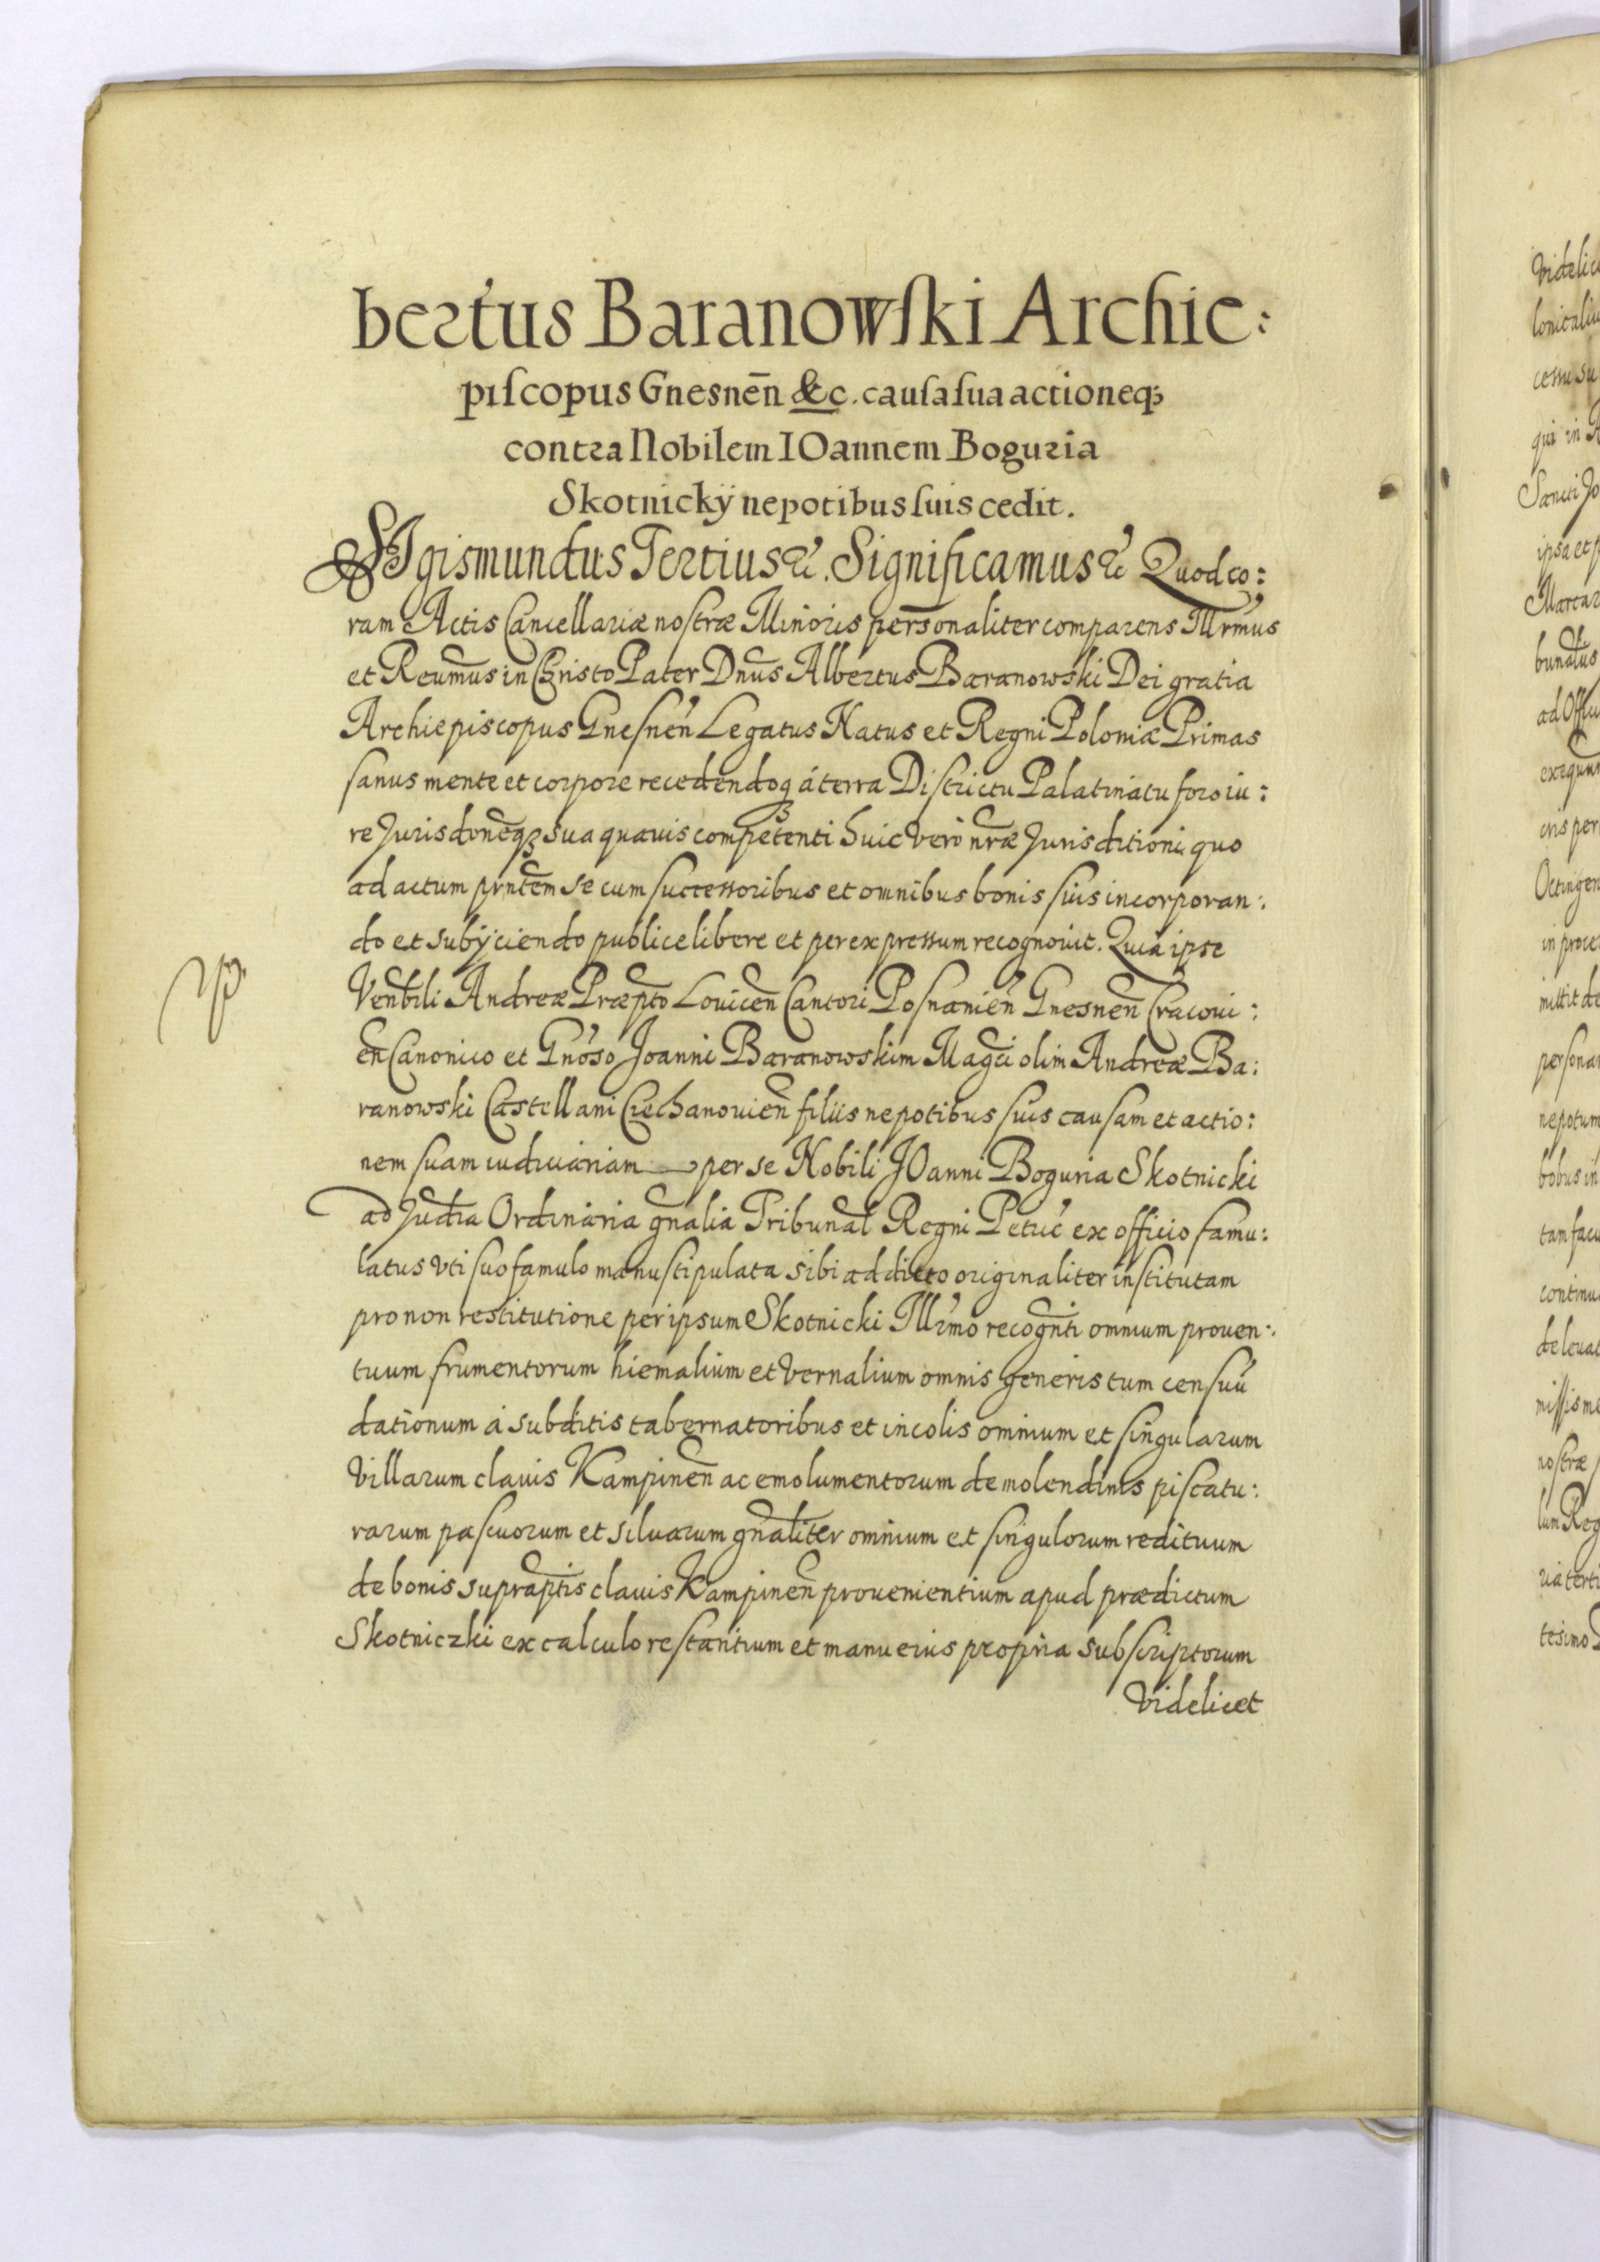 bertus Baranowſki Archie:
piſcopus Gnesnen̄ &c. cauſa ſua actioneq̃
contra Nobilem IOannem Boguria
Skotnickÿ nepotibus ſuis cedit.
SIgismundus Tertius &c. Significamus &c Quod co:
ram Actis Cancellariæ nostræ Minoris personaliter comparens Illr̃mus
et Reum̃us in Christo Pater Dnũs Albertus Baranowski Dei gratia
Archiepiscopus Gnesnen̄ Legatus Natus et Regni Poloniæ Primas
sanus mente et corpore recedendoq̃ á terra Districtu Palatinatu foro iu:
re Jurisdoneq̃ sua quavis competenti huic vero nr̃æ Jurisditioni quo
ad actum pnt̃em se cum successoribus et omnibus bonis suis incorporan:
do et subÿciendo publice libere et per expressum recognovit. Quia ipse
Venbĩli Andreæ Præpt̃o Lovicen̄ Cantori Posnanien̄ Gnesnen̄ Cracovi:
en̄ Canonico et Gnõso Joanni Baranowskim Magc̃i olim Andreæ Ba:
ranowski Castellani Czechanovien̄ filiis nepotibus suis causam et actio:
nem suam iudiciariam per se Nobili JOanni Boguria Skotnicki
ad Judĩa Ordinaria gñalia Tribunal̃ Regni Petric̃ ex officio famu:
latus vti suo famulo manustipulata sibi addicto originaliter institutam
pro non restitutione per ipsum Skotnicki Illr̃mo recogñti omnium proven:
tuum frumentorum hiemalium et vernalium omnis generis tum censuũ
dationum á subditis tabernatoribus et incolis omnium et singularum
Villarum clavis Kampinen̄ ac emolumentorum de molendinis piscatu:
rarum pascuorum et silvarum gñaliter omnium et singulorum redituum
de bonis suprap̃tis clavis Kampinen̄ provenientium apud prædictum
Skotniczki ex calculo restantium et manu eius propria subscriptorum
videlicet